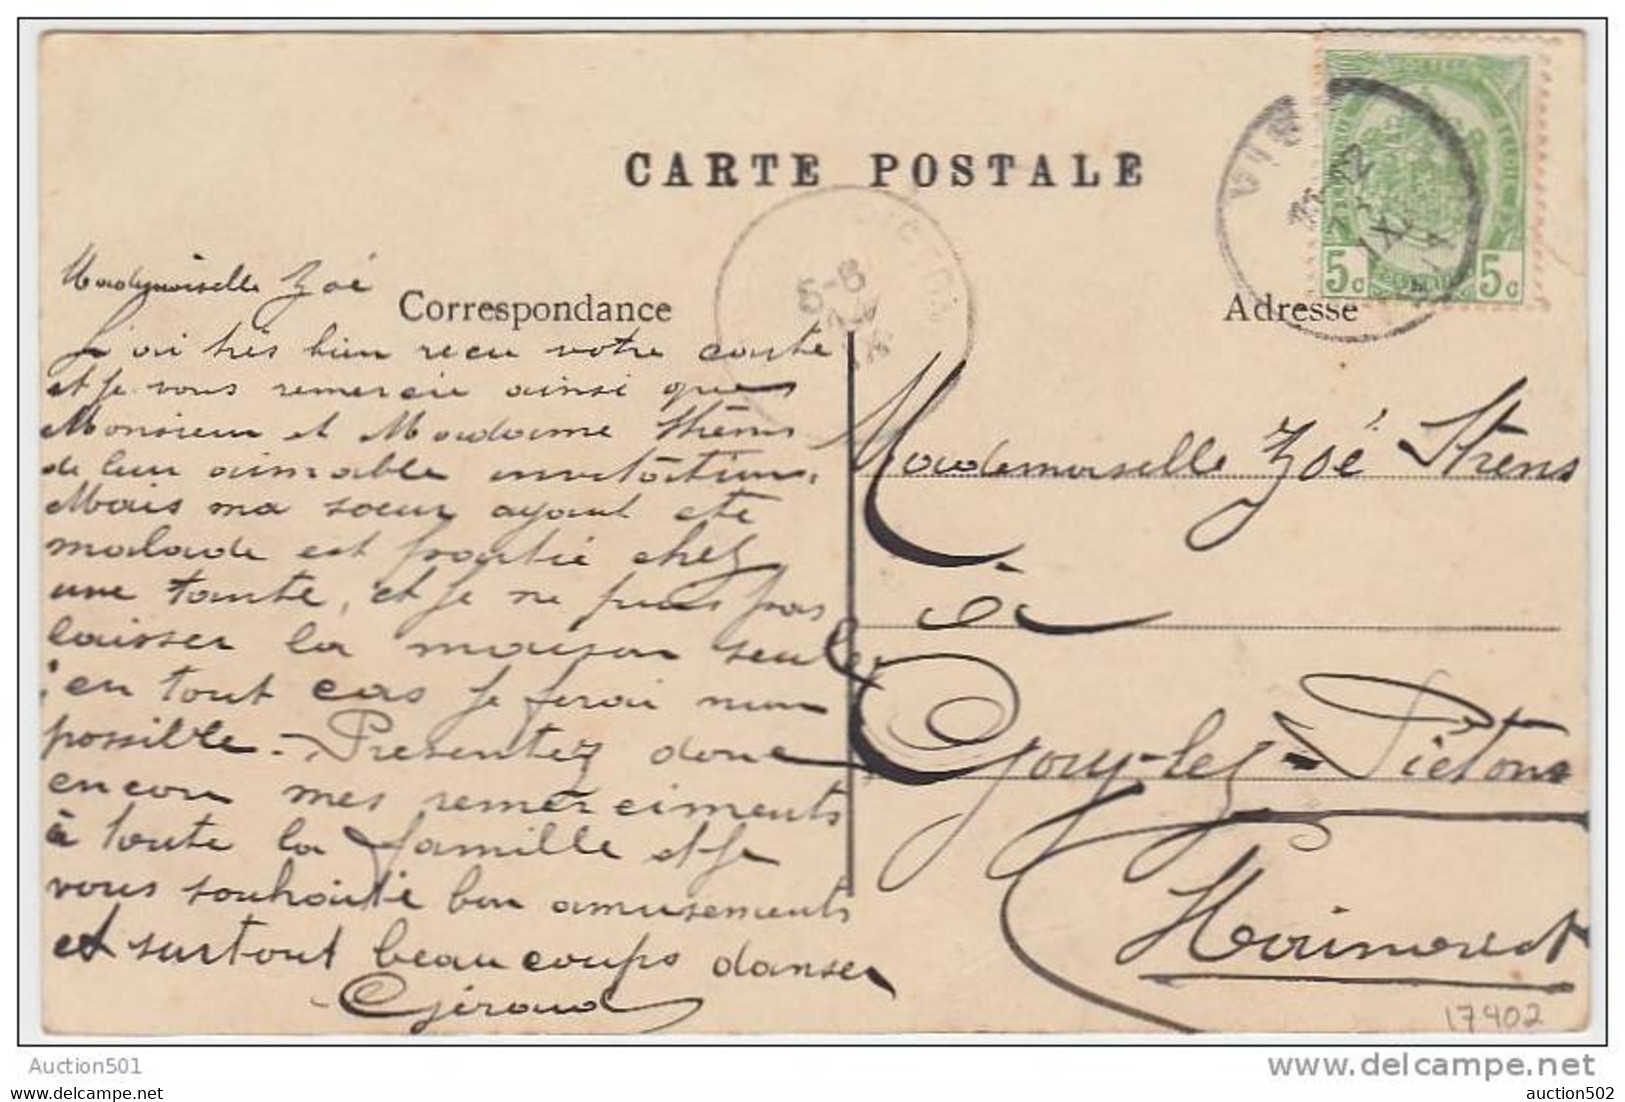 CARTE POSTALE
Correspondance
Adresse
5c 5c
Mademoiselle Zoé
J'ai très bien recu votre carte
et je vous remercie ainsi que
Monsieur et Madame Strens
de leur aimable invitation.
Mais ma soeur ayant ete
malade est partie chez
une tante, et je ne puis pas
laisser la maison seule
en tout cas je ferai mon
possible. - Presentez donc
encore mes remerciments
à toute la famille et je
vous souhaite bon amusements
et surtout beaucoups danser
Géraud
Mademoiselle Zoé Strens
à
Gouy-lez-Piétons
Hainaut
17402
Auction501
www.delcampe.net
auction502